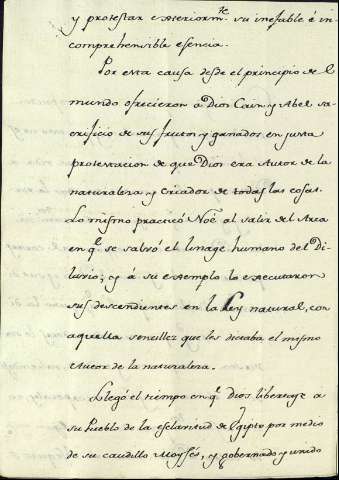 y protestar exteriorm.te su inefable é in
comprehensible esencia.
Por esta causa desde el principio del
mundo ofrecieron a Dios Cain y Abel sa-
crificio de sus frutos y ganados en justa
protestacion de que Dios era Autor de la
naturaleza y Criador de todas las cosas.
Lo mismo practicó Noé al salir del Arca
en q.e se salvó el linage humano del Di-
luvio; y á su exemplo lo executaron
sus descendientes en la Ley natural, con
aquella sencillez que les dictaba el mismo
Autor de la naturaleza.
Llegó el tiempo en q.e Dios libertase á
su Pueblo de la esclavitud de Egipto por medio
de su caudillo Moyses, y gobernado y unido